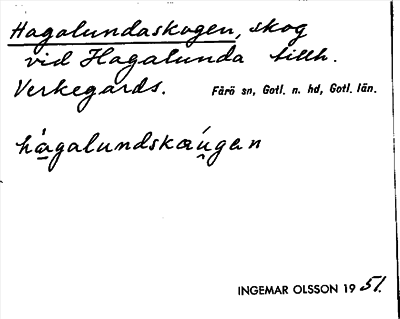 Hagalundaskogen, skog
vid Hagalunda tillh.
Verkegards. Fårö sn, Gotl. n. hd, Gotl. län.
hågalundskæu̯gen
INGEMAR OLSSON 19 51.